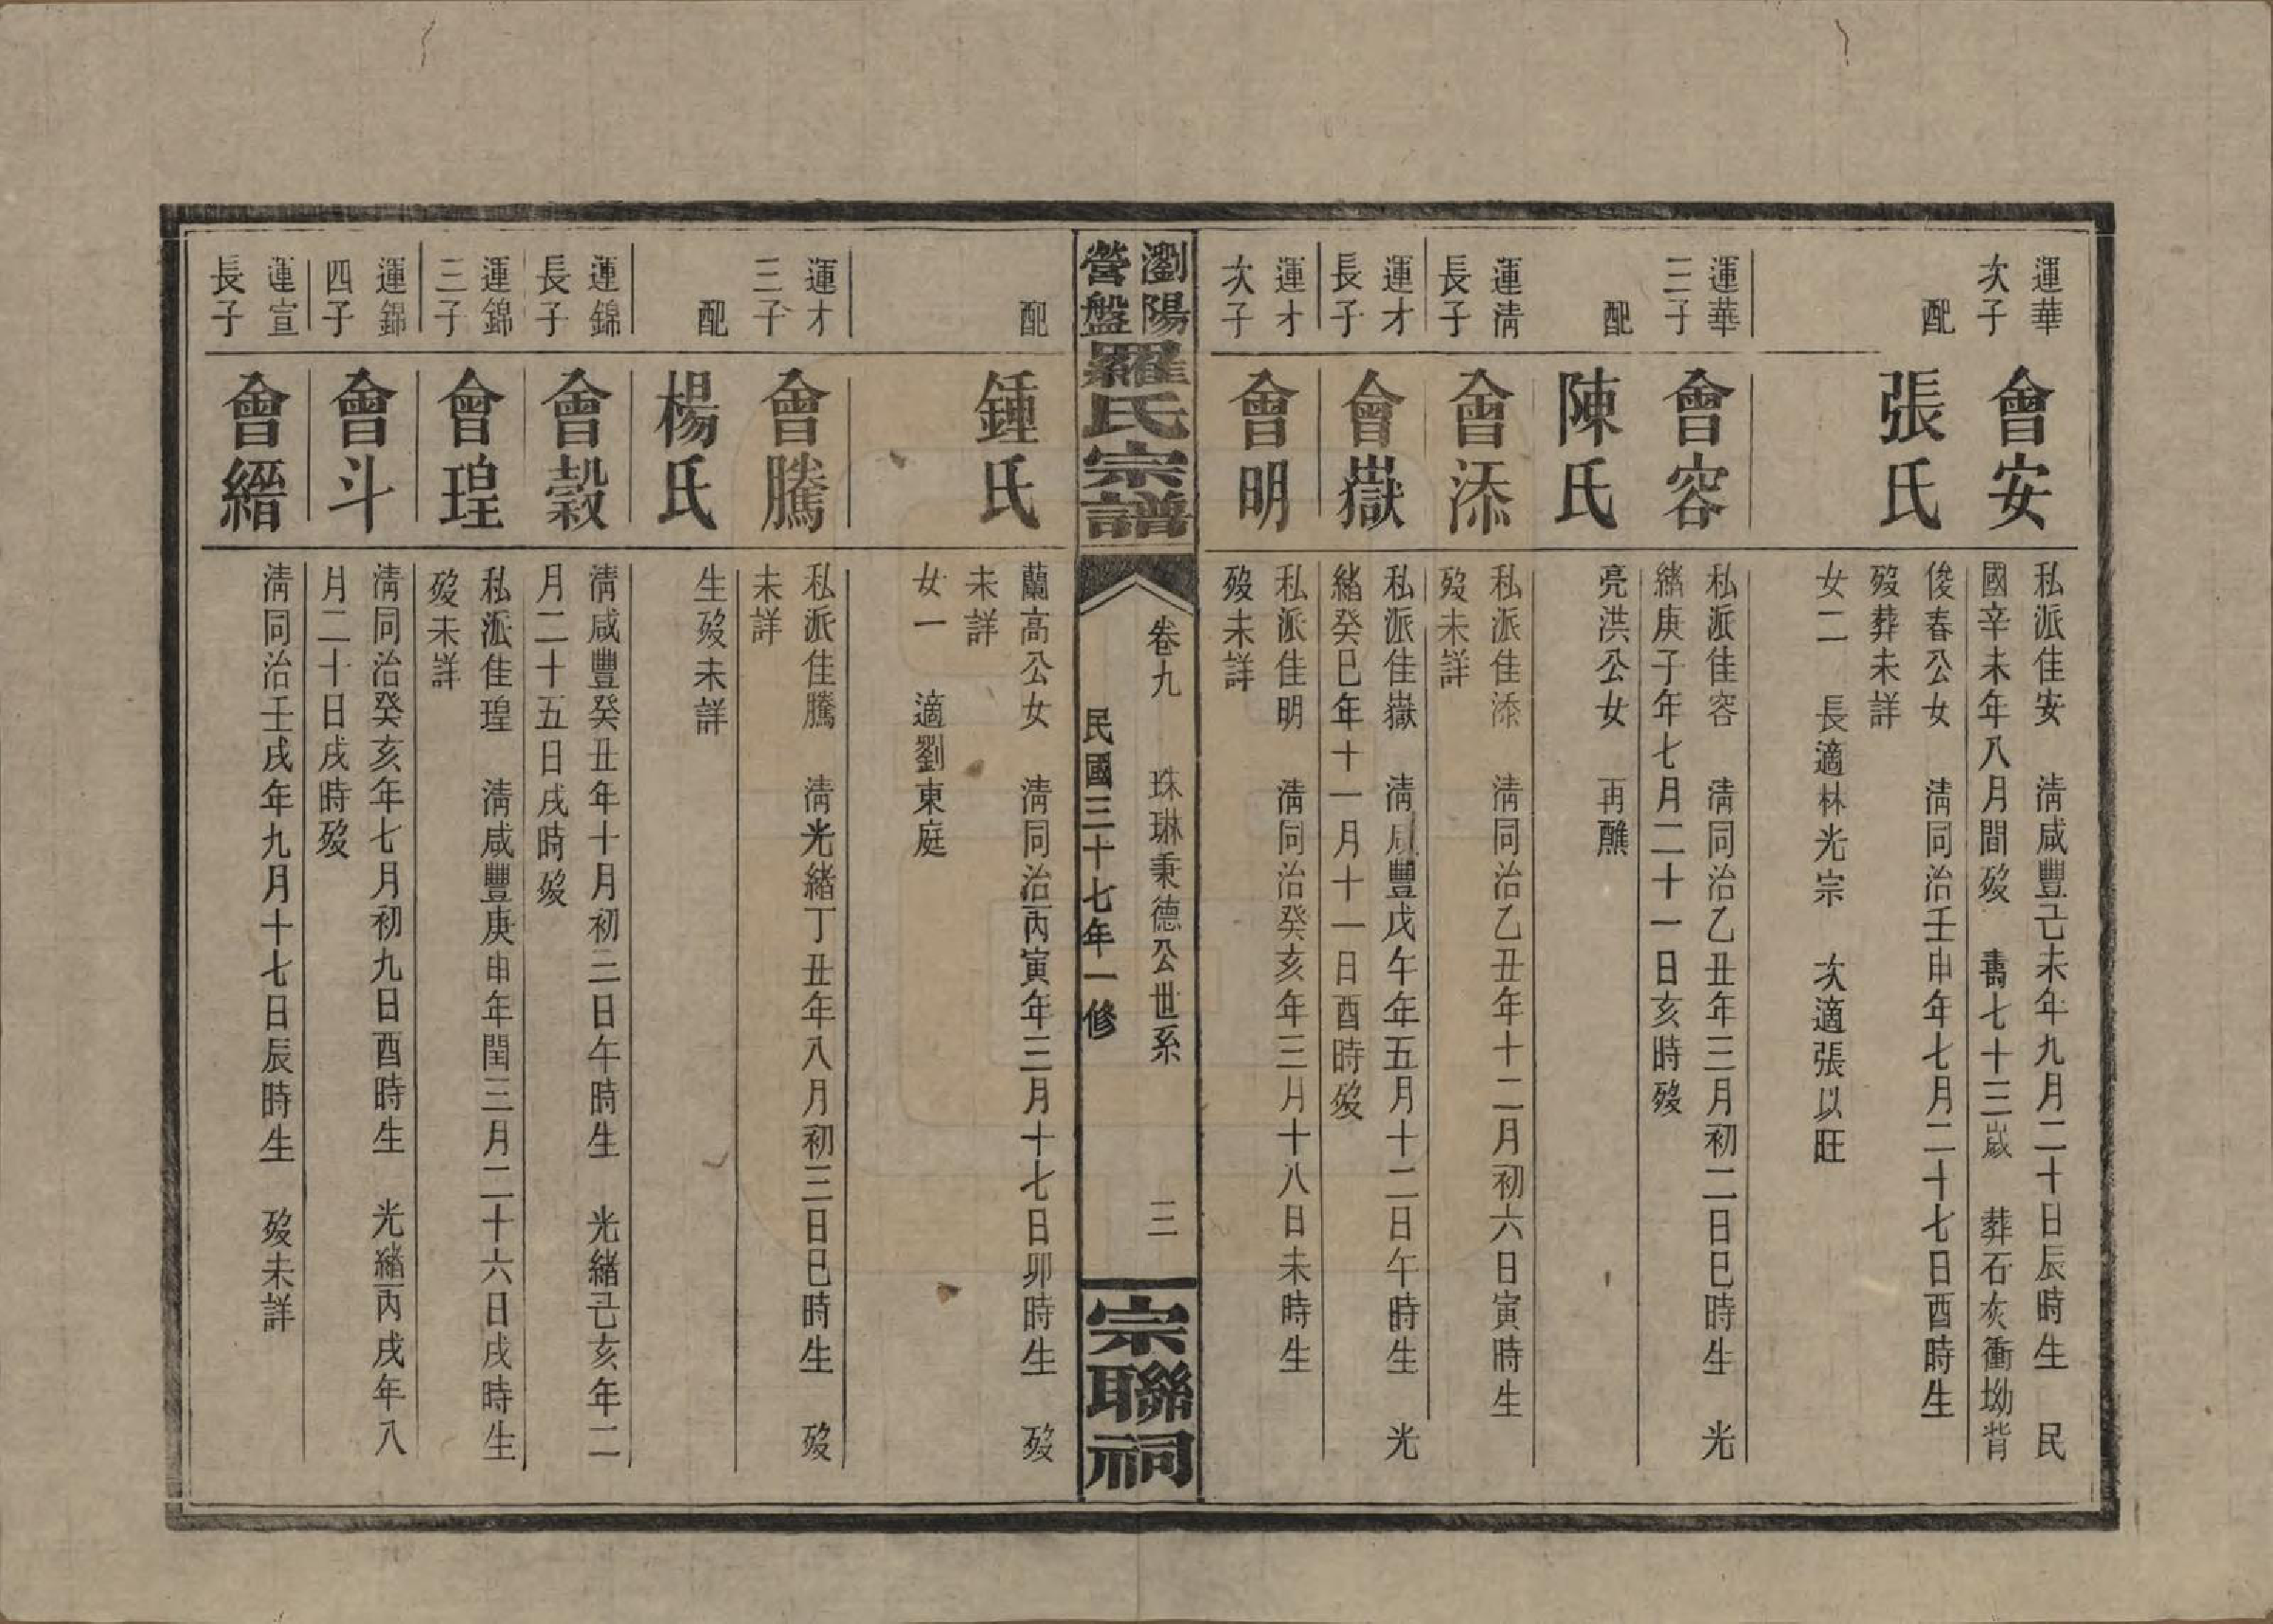 運華
次子
會安
私派佳安　清咸豐己未年九月二十日辰時生　民
國辛未年八月間歿　壽七十三歲　葬石灰衝坳背
配
張氏
俊春公女　清同治壬申年七月二十七日酉時生
歿葬未詳
女二　長適林光宗　次適張以旺
運華
三子
會容
私派佳容　清同治乙丑年三月初二日巳時生　光
緒庚子年七月二十一日亥時歿
配
陳氏
亮洪公女　再醮
運清
長子
會添
私派佳添　清同治乙丑年十二月初六日寅時生
歿未詳
運才
長子
會嶽
私派佳嶽　清咸豐戊午年五月十二日午時生　光
緒癸巳年十一月十一日酉時歿
運才
次子
會明
私派佳明　清同治癸亥年三月十八日未時生
歿未詳
瀏陽
營盤
羅氏宗譜
卷九　珠琳秉德公世系　三
民國三十七年一修
宗聯祠
配
鍾氏
蘭高公女　清同治丙寅年三月十七日卯時生　歿
未詳
女一　適劉東庭
運才
三子
會騰
私派佳騰　清光緒丁丑年八月初三日巳時生　歿
未詳
配
楊氏
生歿未詳
運錦
長子
會穀
清咸豐癸丑年十月初二日午時生　光緒己亥年二
月二十五日戌時歿
運錦
三子
會瑝
私派佳瑝　清咸豐庚申年閏三月二十六日戌時生
歿未詳
運錦
四子
會斗
清同治癸亥年七月初九日酉時生　光緒丙戌年八
月二十日戌時歿
運宣
長子
會縉
清同治壬戌年九月十七日辰時生　歿未詳